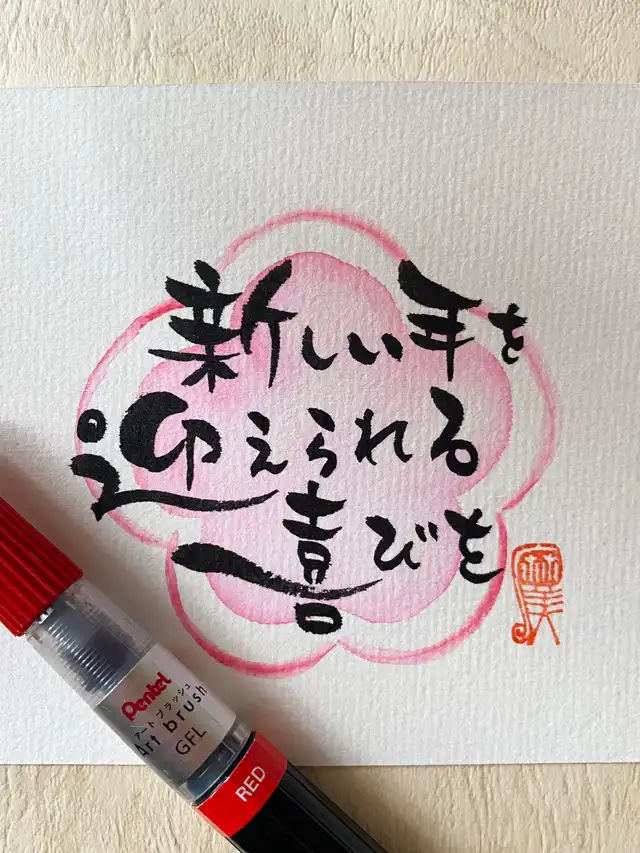 新しい年を
迎えられる
喜びを
Pentel
アートブラッシュ
Art brush
GFL
RED